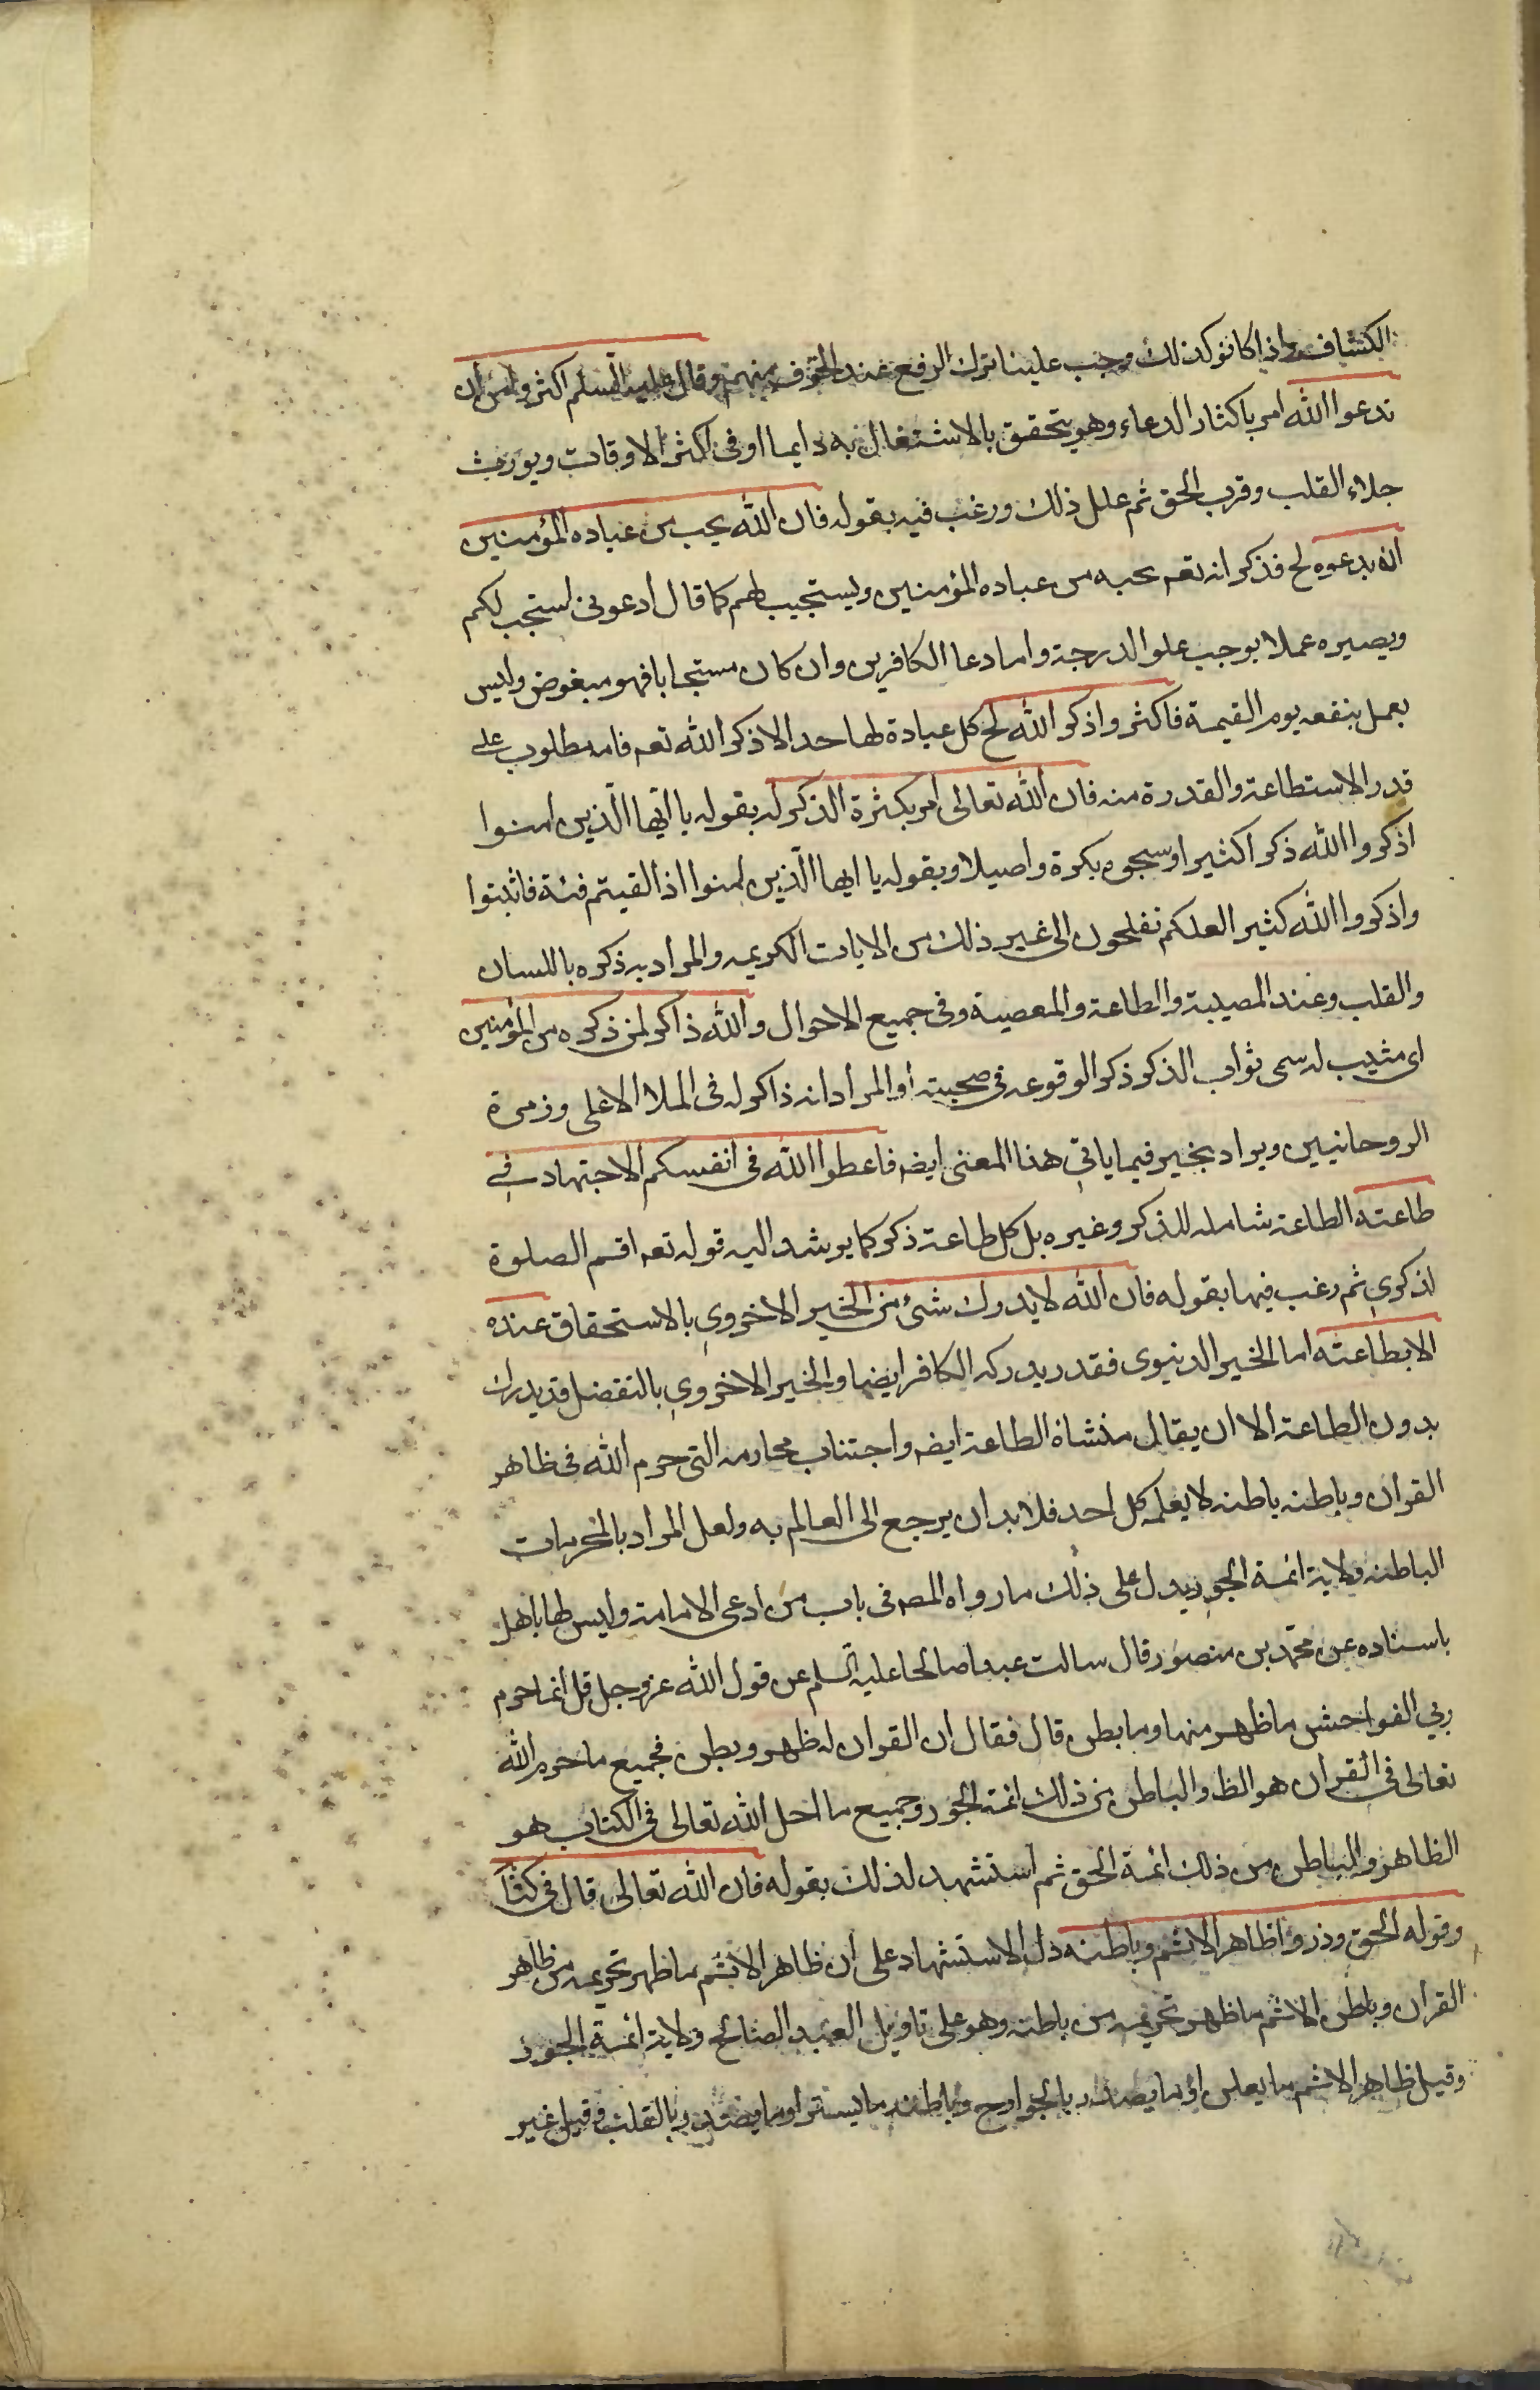 الكشاف واذا كانو كذلك وجب علينا ترك الرفع عند الخوف منهم وقال عليه السلم اكثروا من ان
تدعوا الله امر باكثار الدعاء وهو يتحقق بالاشتغال به دايما او فى اكثر الاوقات ويورث
جلاء القلب وقرب الحق ثم علل ذلك ورغب فيه بقوله فان الله يحب من عباده المؤمنين
ان يدعوه لخ فذكر انه تعم يحبه من عباده المؤمنين ويستجيب لهم كما قال ادعونى استجب لكم
ويصيره عملا يوجب علو الدرجة واما دعا الكافرين وان كان مستجابا فهو مبغوض وليس
بعمل ينفعه يوم القيمة فاكثروا ذكر الله لخ كل عبادة لها حد الا ذكر الله تعم فانه مطلوب على
قدر الاستطاعة والقدرة منه فان الله تعالى امر بكثرة الذكر له بقوله يا ايها الذين امنوا
اذكروا الله ذكرا كثيرا وسبحوه بكرة واصيلا وبقوله يا ايها الذين امنوا اذا لقيتم فئة فاثبتوا
واذكروا الله كثيرا لعلكم تفلحون الى غير ذلك من الايات الكريمه والمراد به ذكره باللسان
والقلب وعند المصيبة والطاعة والمعصية وفى جميع الاحوال والله ذاكر لمن ذكره من المؤمنين
اى مثيب له سمى ثواب الذكر ذكرا لوقوعه فى صحبته او المراد انه ذاكر له فى الملا الاعلى وزمرة
الروحانيين ويراد بخير فيما ياتي هذا المعنى ايضه فاعطوا الله فى انفسكم الاجتهاد في
طاعته الطاعة شامله للذكر وغيره بل كل طاعة ذكر كما يرشد اليه قوله تعم اقم الصلوة
لذكري ثم رغب فيها بقوله فان الله لا يدرك شئ من الخير الاخروي بالاستحقاق عنده
الا بطاعته اما الخير الدنيوى فقد يدركه الكافر ايضا والخير الاخروي بالتفضل قد يدرك
بدون الطاعة الا ان يقال منشاة الطاعة ايضه واجتناب محارمه التى حرم الله فى ظاهر
القران وباطنه باطنه لا يعلمه كل احد فلابد ان يرجع الى العالم به ولعل المراد بالمحرمات
الباطنه ولاية ائمة الجور يدل على ذلك ما رواه المصه فى باب من ادعى الامامة وليس لها باهل
باسناده عن محمد بن منصور قال سالت عبدا صالحا عليه السلم عن قول الله عز وجل قل انما حرم
ربي الفواحش ما ظهر منها وما بطن قال فقال ان القران له ظهر وبطن فجميع ما حرم الله
تعالى فى القران هو الظ والباطن من ذلك ائمة الجور وجميع ما احل الله تعالى فى الكتاب هو
الظاهر والباطن من ذلك ائمة الحق ثم استشهد لذلك بقوله فان الله تعالى قال فى كتا
وقوله الحق وذروا ظاهر الاثم وباطنه دل الاستشهاد على ان ظاهر الاثم ما ظهر تحريمه من ظاهر
القران وباطن الاثم ما ظهر تحريمه من باطنه وهو على تاويل العبد الصالح ولاية ائمة الجور
وقيل ظاهر الاثم ما يعلن او ما يصدر بالجوارح وباطنه ما يستر او ما يصدر بالقلب وقيل غير